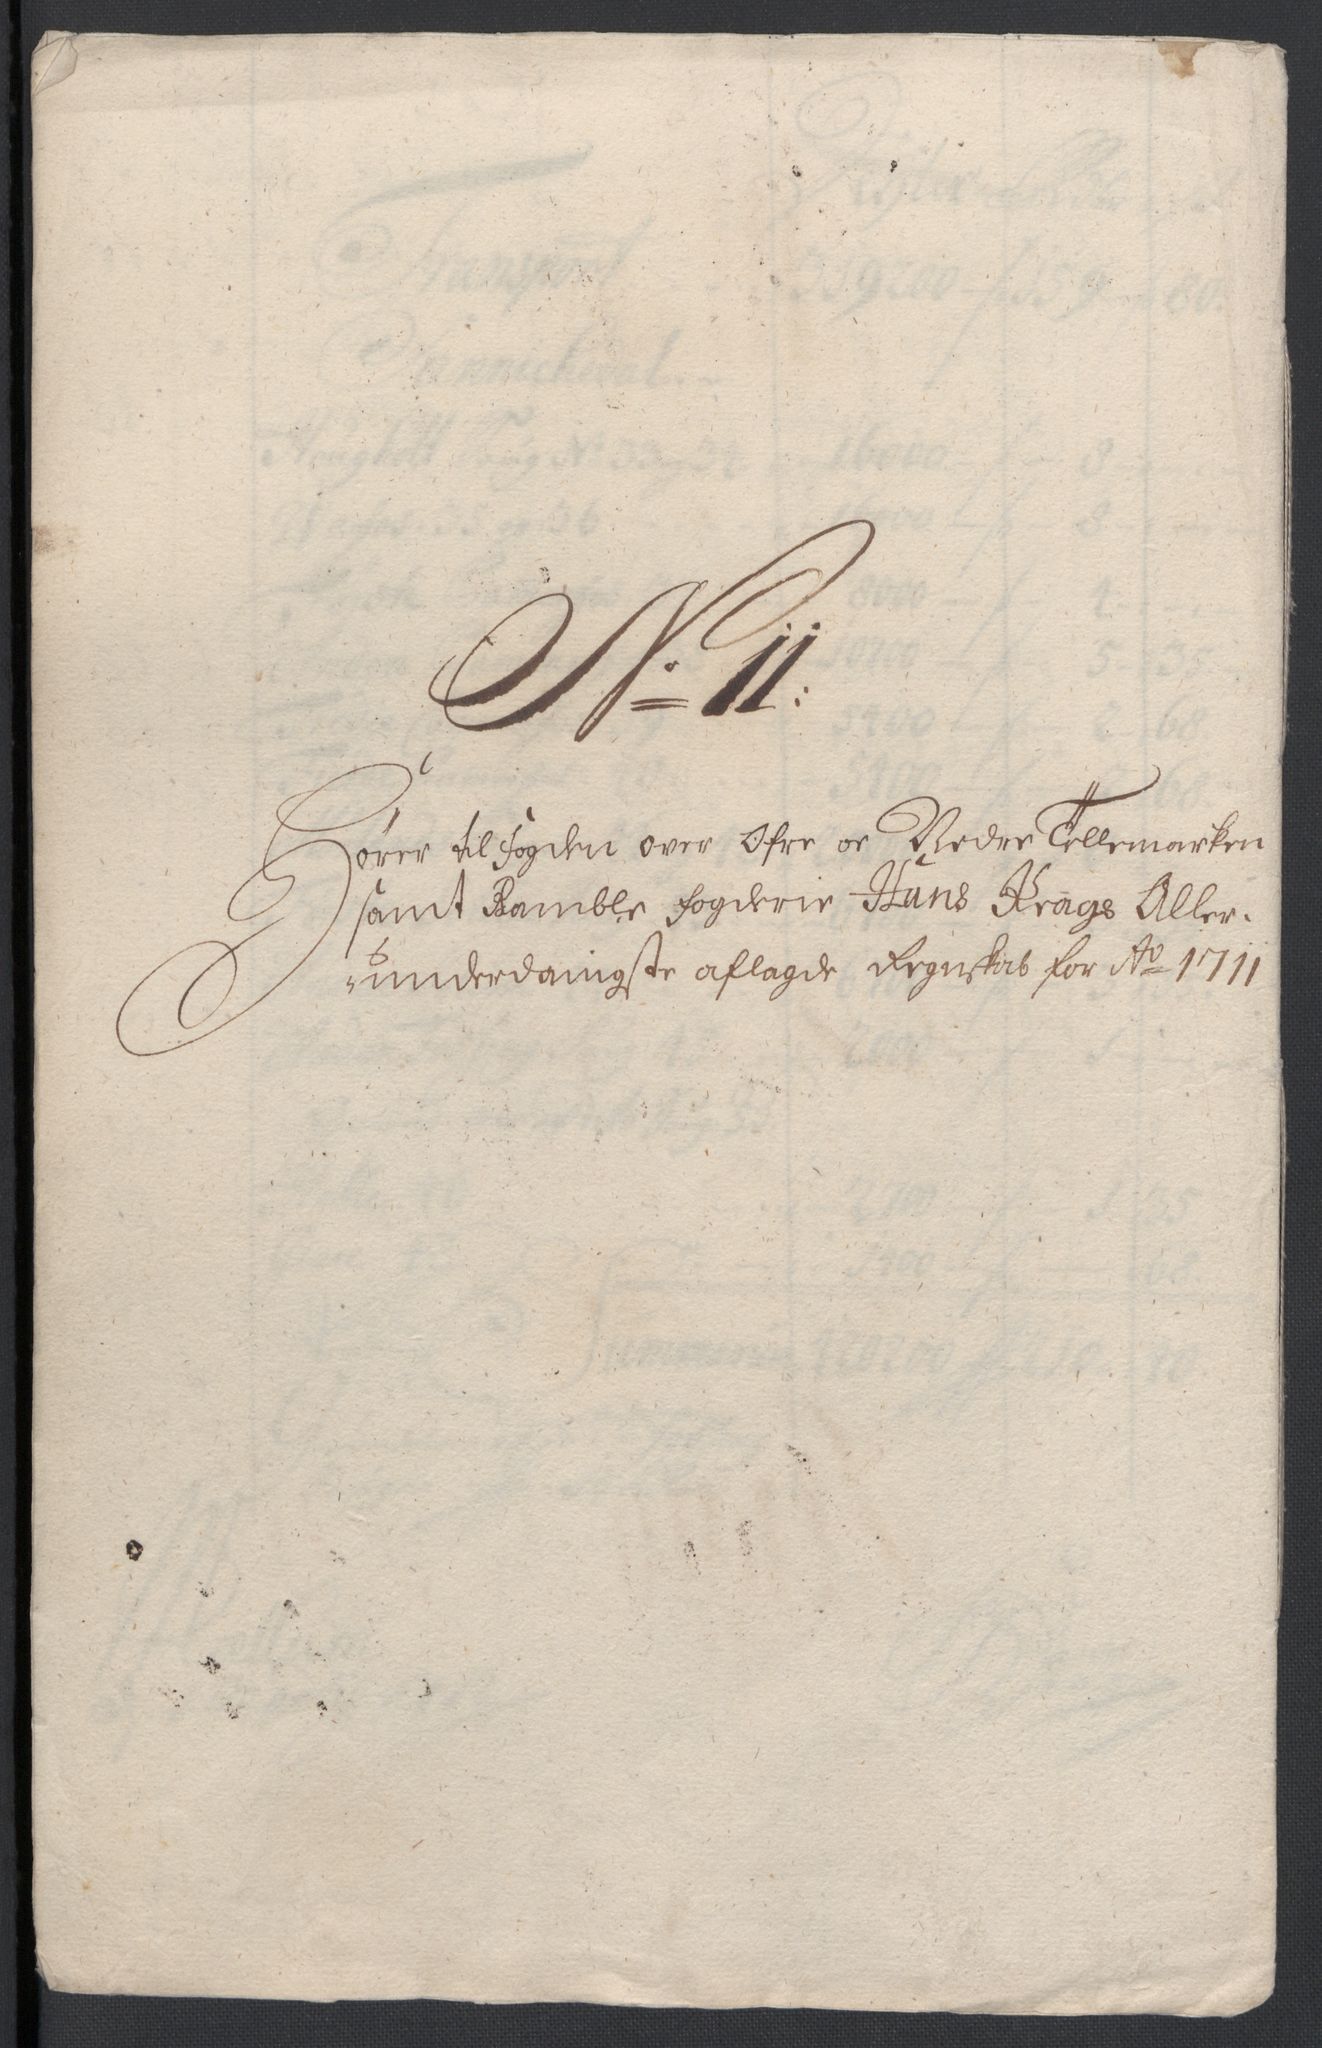 No 11:
Hører til fogden over Øfre oc Nedre Tellemarken
samt Bamble fogderie Hans Krags Aller-
underdanigste aflagde Regnskab for Ao 1711